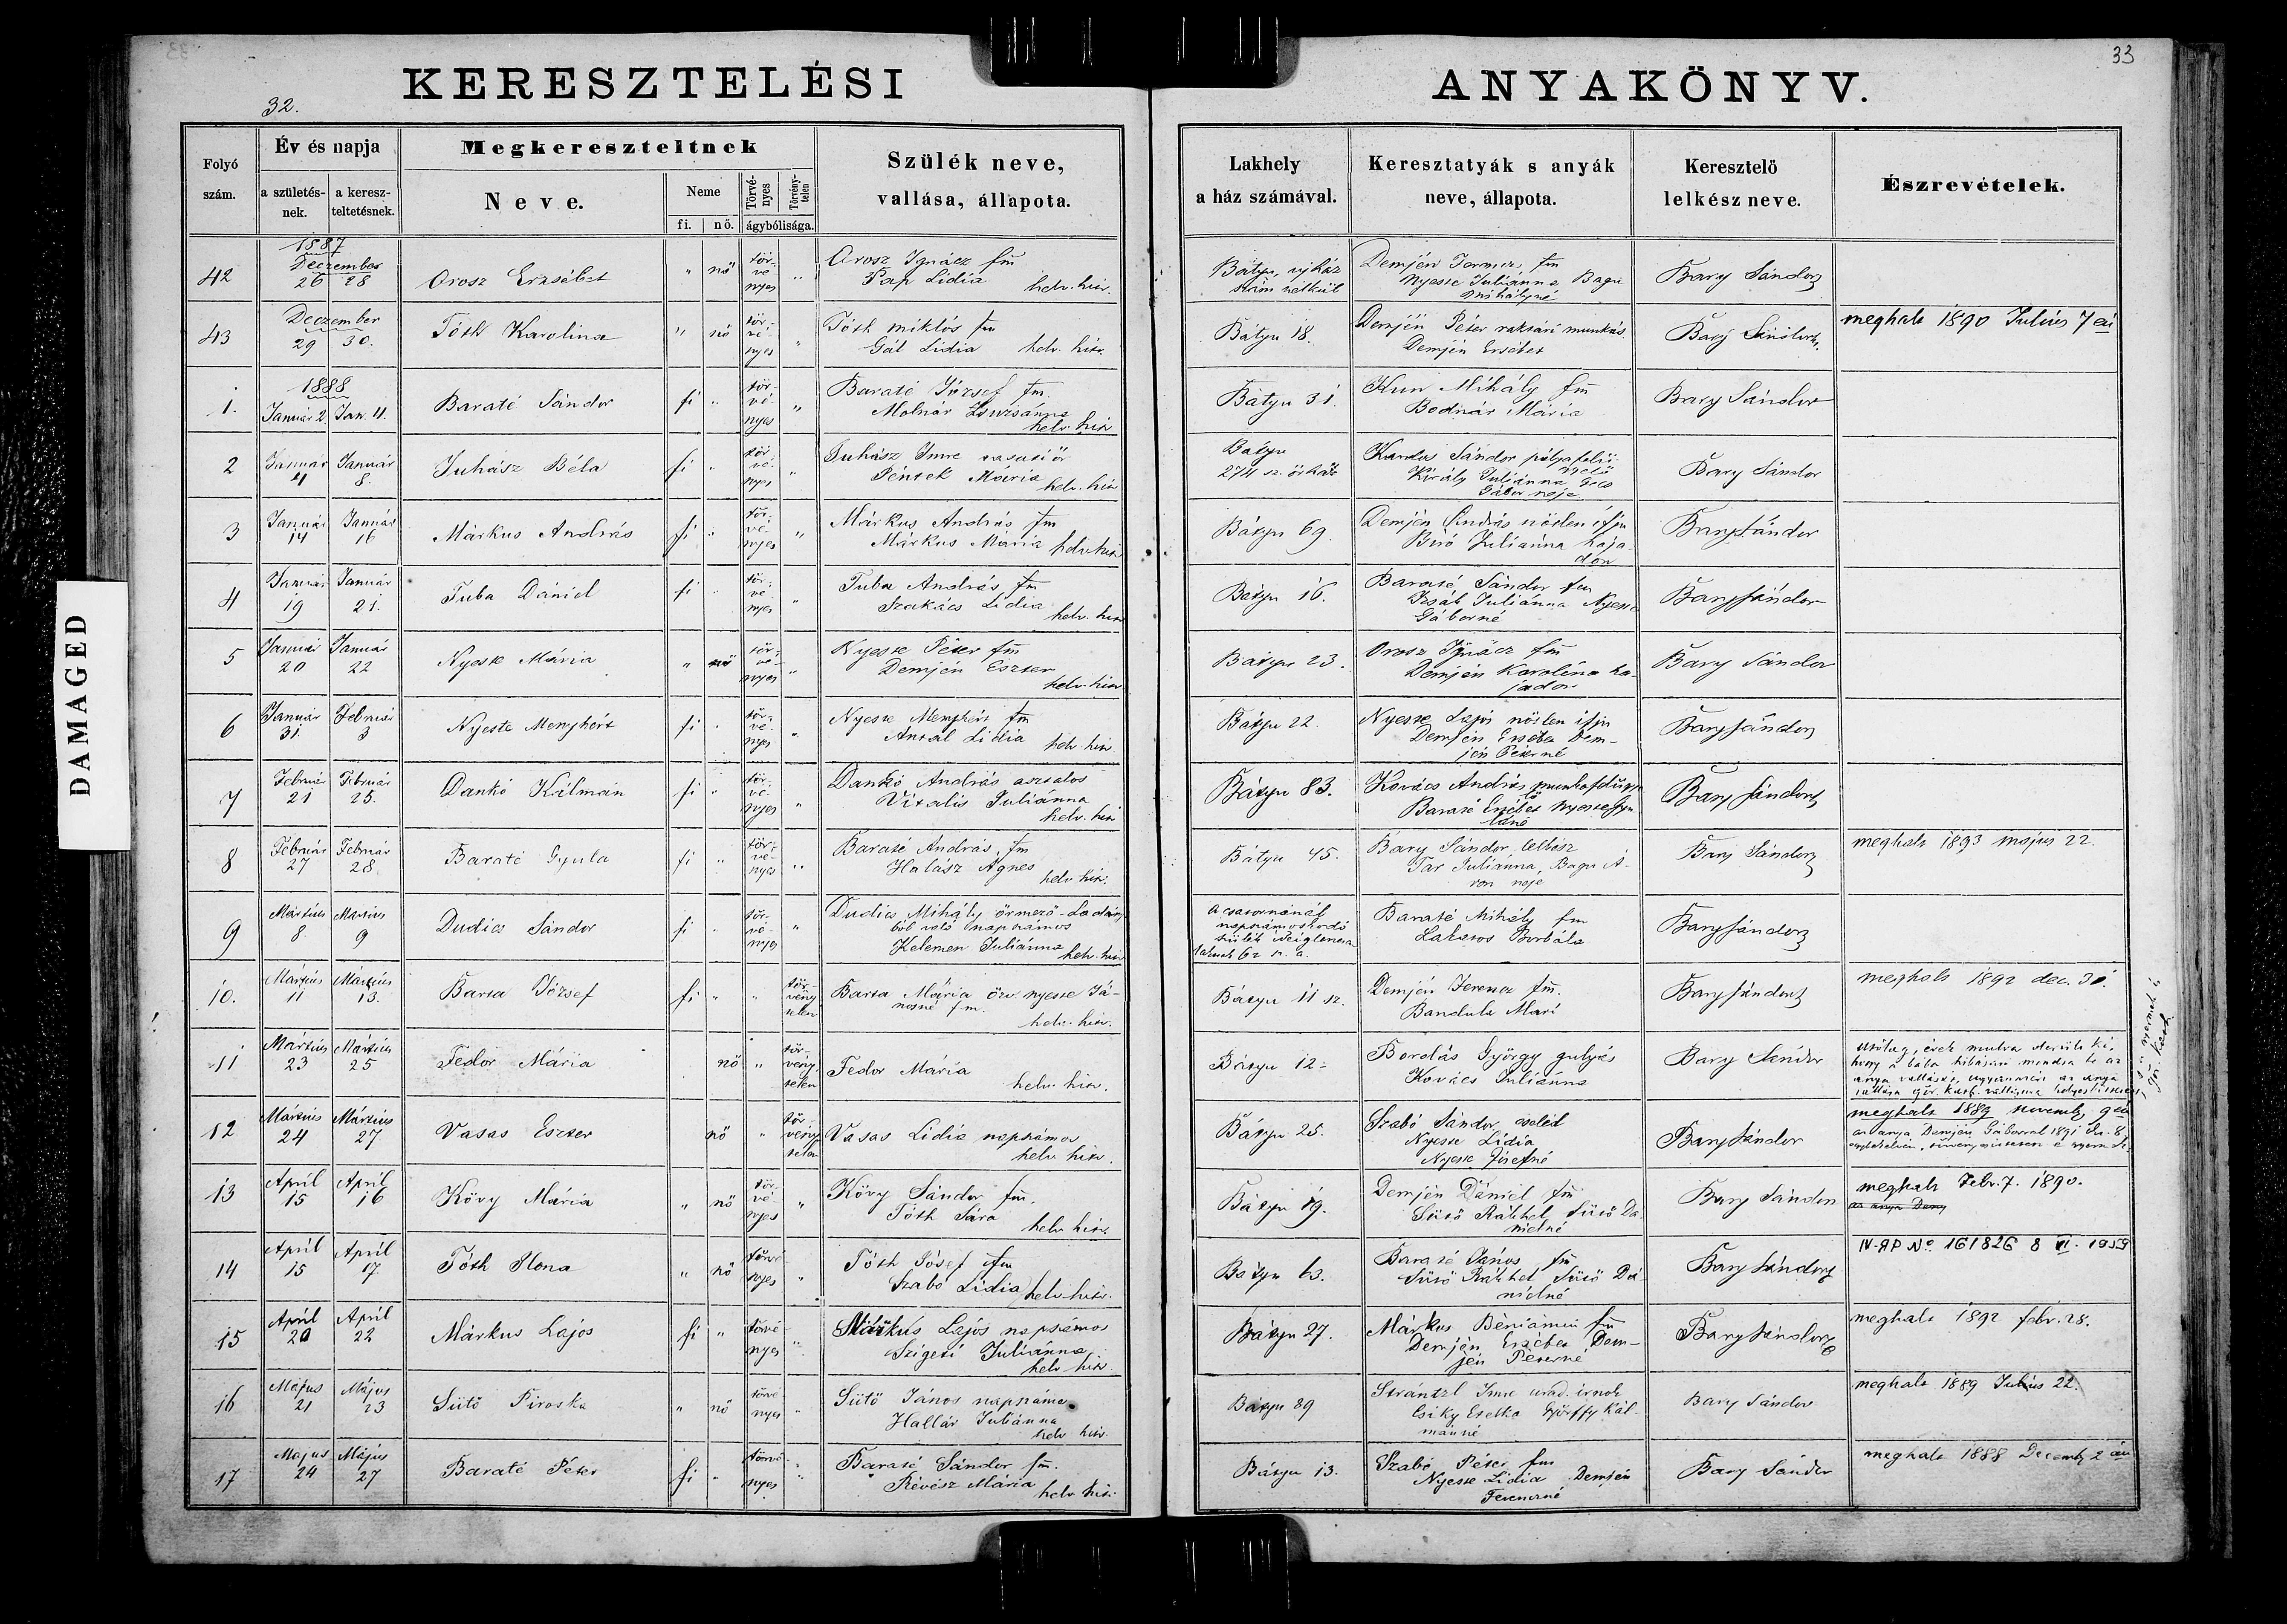 33
KERESZTELÉSI ANYAKÖNYV.
32.
DAMAGED
Folyó szám.
Év és napja
a születésnek.
a keresz-teltetésnek.
Megkereszteltnek
Neve.
Neme
fi. nő.
Törvé-nyes
Törvény-telen
ágybólisága.
Szülék neve, vallása, állapota.
Lakhely a ház számával.
Keresztatyák s anyák neve, állapota.
Keresztelő lelkész neve.
Észrevételek.
1887
42 Deczember 26 28 Orosz Erzsébet " nő tör-vé-nyes " Orosz Ignácz fm Pap Lidia helv. hitv. Bátyu, ujház szám nélkül Demjén Ferencz fm Nyeste Juliánna Bagu Mihályné Bary Sándor
43 Deczember 29 30. Tóth Karolina " nő tör-vé-nyes " Tóth Miklós fm Gál Lidia helv. hitv. Bátyu 18. Demjén Péter raktári munkás Demjén Ersébet Bary Sándor meghalt 1890 Julius 7én
1888
1. Január 2. Jan. 11. Baráté Sándor fi " tör-vé-nyes " Baráté József fm. Molnár Zsuzsánna helv. hitv Bátyu 31. Kun Mihály fm Bodnár Mária Bary Sándor
2 Január 4 Január 8. Juhász Béla fi " tör-vé-nyes " Juhász Imre vasuti őr Péntek Mária helv. hitv Bátyu 274 sz. őrház Kardos Sándor pályafelü- Király Juliánna Gábor neje Bary Sándor
3 Január 14 Január 16 Márkus András fi " tör-vé-nyes " Márkus András fm Márkus Mária helv. hitv Bátyu 69. Demjén András nőtlen ifju Biró Juliánna haja-don Bary Sándor
4 Január 19 Január 21. Tuba Dániel fi " tör-vé-nyes " Tuba András fm Szakács Lidia helv. hitv Bátyu 16. Baráté Sándor fm Juliánna Nyeste Gáborné Bary Sándor
5 Január 20 Január 22 Nyeste Mária " nő tör-vé-nyes " Nyeste Péter fm Demjén Eszter helv. hitv Bátyu 23. Orosz Ignácz fm Demjén Karolina ha-jadon Bary Sándor
6 Január 31 Február 3 Nyeste Menyhért fi " tör-vé-nyes " Nyeste Menyhért fm Antal Lidia helv. hitv. Bátyu 22. Nyeste Lajos nőtlen ifju Demjén Erzsébet Dem-jén Péterné Bary Sándor
7 Február 21 Február 25. Dankó Kálmán fi " tör-vé-nyes " Dankó András asztalos Vitális Juliánna helv. hitv Bátyu 83. Kovács András Baráté Erzsébet Nyeste Bary Sándor
8 Február 27 Február 28 Baráté Gyula fi " tör-vé-nyes " Baráté András, fm Halász Ágnes helv. hitv. Bátyu 45. Bary Sándor lelkész Tar Juliánna, Bagu Á-ron neje Bary Sándor meghalt 1893 május 22.
9 Mártius 8. Mártius 9 Dudics Sándor fi " tör-vé-nyes " Dudics Mihály őrmező-Ladány-ból való napszámos Kelemen Juliánna helv. hitv a csatornánál napszámoskodó szülék laknak 62 sz. a. Baráté Mihály fm Lakatos Borbála Bary Sándor
10. Mártius 11 Mártius 13. Barta József fi " " tör-vény-telen Barta Mária özv. Nyeste Já-nosné fm. helv. hitv. Bátyu 11 sz. Demjén Ferencz fm. Bandula Mari Bary Sándor meghalt 1892 dec. 31.
11 Mártius 23 Mártius 25 Fedor Mária nő " tör-vény-telen Fedor Mária helv. hitv. Bátyu 12 Bordás György gulyás Kovács Juliánna Bary Sándor utólag, évek mulva derült ki, hogy a bába hibásan mondta be az anya vallását, ugyanis az anya vallása gör. kath.
12 Mártius 24 Mártius 27 Vasas Eszter nő " tör-vény-telen Vasas Lidia napszámos helv. hitv. Bátyu 25. Szabó Sándor cseléd Nyeste Lidia Nyeste Józsefné Bary Sándor meghalt 1889 novemb. 9én az anya Demjén Gáborral 1891
13 April 15 April 16 Kövy Mária " nő tör-vé-nyes " Kövy Sándor fm. Tóth Sára helv. hitv. Bátyu 19. Demjén Dániel fm Sütő Ráhhel Sütő Dá-nielné Bary Sándor meghalt Febr. 7. 1890. az anya Demj
14 April 15 April 17. Tóth Ilona " nő törvé-nyes " Tóth József fm Szabó Lidia helv. hitv. Bátyu 63. Baráté János fm Sütő Ráhhel Sütő Dá-nielné Bary Sándor IV-ЯР № 161826 8 VI. 1959
15 April 20 April 22 Márkus Lajos fi " törvé-nyes " Márkus Lajos napszámos Szigeti Juliánna helv. hitv. Bátyu 27. Márkus Béniamin fm Demjén Erzsébet Dem-jén Péterné Bary Sándor meghalt 1892 febr. 28.
16 Május 21 Május 23 Sütő Piroska " nő törvé-nyes " Sütő János napszámos Hallár Juliánna helv. hitv. Bátyu 89 Stránzl Imre urad. irnok Csiky Etelka Györffy Kál-mánné Bary Sándor meghalt 1889 Julius 22.
17 Május 24 Május 27 Baráté Péter fi " törvé-nyes " Baráté Sándor fm. Révész Mária helv. hitv. Bátyu 13. Szabó Péter fm Nyeste Lidia Demjén Ferenczné Bary Sándor meghalt 1888 Decemb 2 án